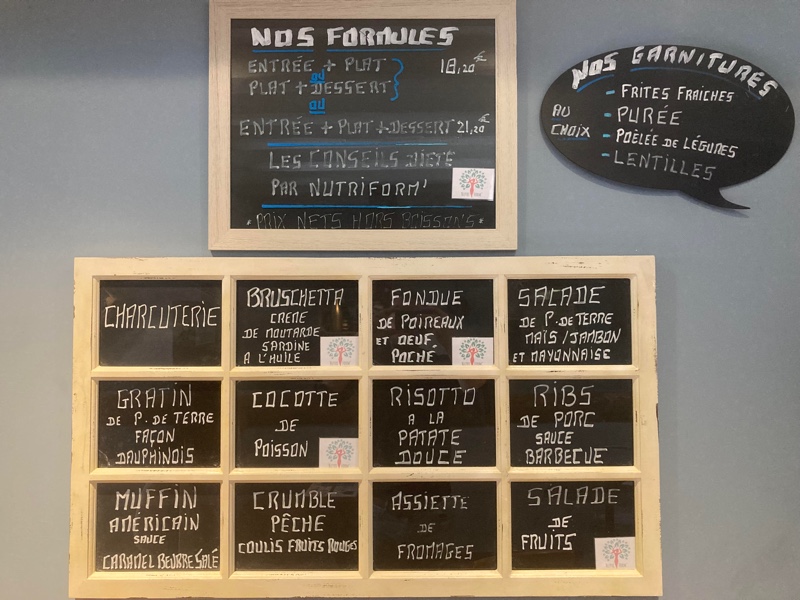 NOS FORMULES
ENTRÉE + PLAT
OU
PLAT + DESSERT
18,20€
OU
ENTRÉE + PLAT + DESSERT 21,20€
LES CONSEILS DIETE
PAR NUTRIFORM'
* PRIX NETS HORS BOISSONS *
NOS GARNITURES
AU
CHOIX
- FRITES FRAICHES
- PURÉE
- POÊLÉE DE LÉGUMES
- LENTILLES
CHARCUTERIE
BRUSCHETTA
CREME
DE MOUTARDE
SARDINE
A L'HUILE
FONDUE
DE POIREAUX
ET OEUF
POCHÉ
SALADE
DE P. DE TERRE
MAÏS / JAMBON
ET MAYONNAISE
GRATIN
DE P. DE TERRE
FAÇON
DAUPHINOIS
COCOTTE
DE
POISSON
RISOTTO
A LA
PATATE
DOUCE
RIBS
DE PORC
SAUCE
BARBECUE
MUFFIN
AMÉRICAIN
SAUCE
CARAMEL BEURRE SALÉ
CRUMBLE
PÊCHE
COULIS FRUITS ROUGES
ASSIETTE
DE
FROMAGES
SALADE
DE
FRUITS